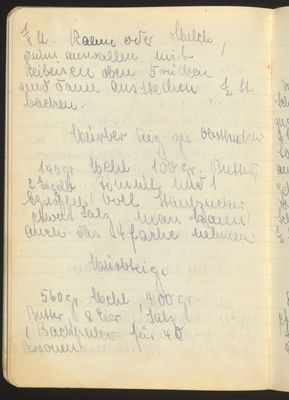 1/8 Ltr. Rahm oder Milch
dünn auswallen mit
Reibeisen oben drücken
und dann ausstechen 1/2 St.
backen.
Mürber Teig zu Obstkuchen
140 gr. Mehl 100 gr. Butter
2 Eigelb Zimmt und 1
voll Staubzucker
etwas Salz man kann
auch das 4 fache nehmen
Mürbteig.
560 gr. Mehl, 400 gr.
Butter 8 Eier, Salz
1 Backpulver für 40
Personen